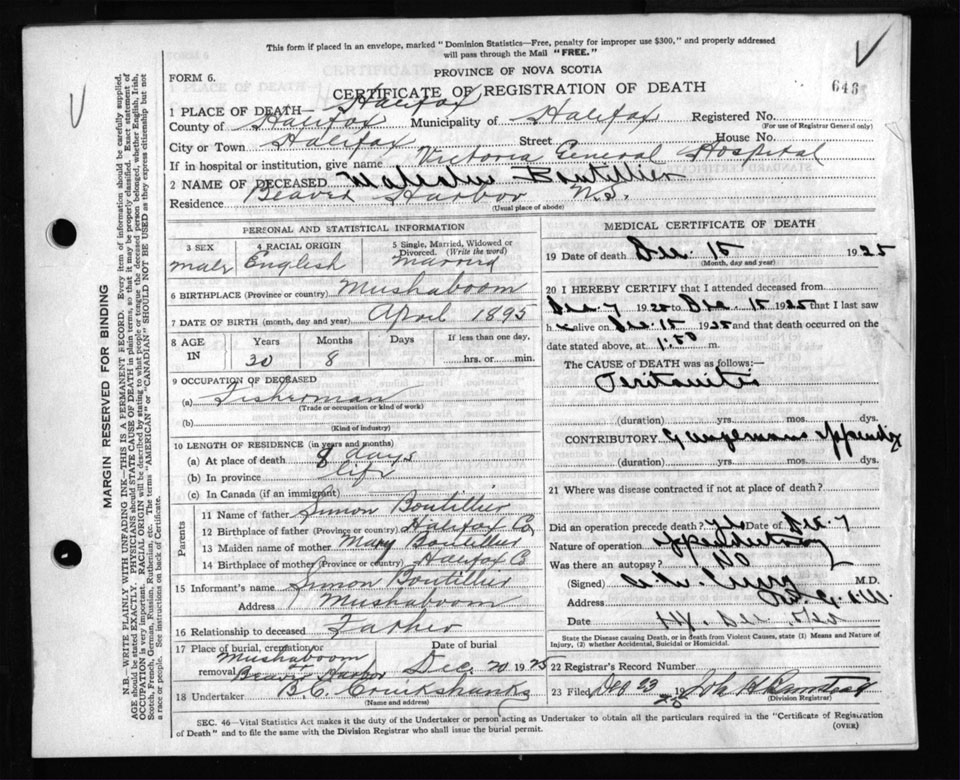 This form if placed in an envelope, marked "Dominion Statistics—Free, penalty for improper use $300," and properly addressed
will pass through the Mail "FREE."
PROVINCE OF NOVA SCOTIA
FORM 6.
CERTIFICATE OF REGISTRATION OF DEATH
648
1 PLACE OF DEATH— Halifax
County of Halifax Municipality of Halifax Registered No.
(For use of Registrar General only)
City or Town Halifax Street House No.
If in hospital or institution, give name Victoria General Hospital
2 NAME OF DECEASED Malcolm Boutillier
Residence Beaver Harbor N.S.
(Usual place of abode)
PERSONAL AND STATISTICAL INFORMATION
3 SEX 4 RACIAL ORIGIN 5 Single, Married, Widowed or Divorced. (Write the word)
Male English Married
6 BIRTHPLACE (Province or country) Mushaboom
7 DATE OF BIRTH (month, day and year) April 1895
8 AGE IN Years Months Days If less than one day,
30 8 hrs. or min.
9 OCCUPATION OF DECEASED
(a) Fisherman
(Trade or occupation or kind of work)
(b)
(Kind of industry)
10 LENGTH OF RESIDENCE (in years and months)
(a) At place of death 8 days
(b) In province life
(c) In Canada (if an immigrant)
Parents
11 Name of father Simon Boutillier
12 Birthplace of father (Province or country) Halifax Co
13 Maiden name of mother Mary Boutillier
14 Birthplace of mother (Province or country) Halifax Co
15 Informant's name Simon Boutillier
Address Mushaboom
16 Relationship to deceased Father
17 Place of burial, cremation or removal Mushaboom Beaver Harbor Date of burial Dec. 20 1925
18 Undertaker B.C. Cruikshanks
(Name and address)
MEDICAL CERTIFICATE OF DEATH
19 Date of death Dec. 15 1925
(Month, day and year)
20 I HEREBY CERTIFY that I attended deceased from
Dec 7 1925 to Dec. 15 1925 that I last saw
h alive on Dec. 15 1925 and that death occurred on the
date stated above, at 1:50 m.
The CAUSE OF DEATH was as follows:—
Peritonitis
(duration) yrs. mos. dys.
CONTRIBUTORY Gangrenous Appendix
(duration) yrs. mos. dys.
21 Where was disease contracted if not at place of death?
Did an operation precede death? yes Date of Dec. 7
Nature of operation Appendectomy
Was there an autopsy? No
(Signed) M.D.
Address
Date
State the Disease causing Death, or in death from Violent Causes, state (1) Means and Nature of
Injury, (2) whether Accidental, Suicidal or Homicidal.
22 Registrar's Record Number
23 Filed Dec 23 1925
(Division Registrar)
SEC. 46—Vital Statistics Act makes it the duty of the Undertaker or person acting as Undertaker to obtain all the particulars required in the "Certificate of Registration
of Death" and to file the same with the Division Registrar who shall issue the burial permit.
(OVER)
MARGIN RESERVED FOR BINDING
N.B.—WRITE PLAINLY WITH UNFADING INK—THIS IS A PERMANENT RECORD. Every item of information should be carefully supplied.
AGE should be stated EXACTLY. PHYSICIANS should STATE CAUSE OF DEATH in plain terms, so that it may be properly classified. Exact statement of
OCCUPATION is very important. RACIAL ORIGIN will be described by stating to what people or tongue the deceased person belonged, whether English, Irish,
Scotch, French, German, Russian, Ruthenian, etc. The terms "AMERICAN" or "CANADIAN" SHOULD NOT BE USED as they express citizenship but not
a race or people. See instructions on back of Certificate.